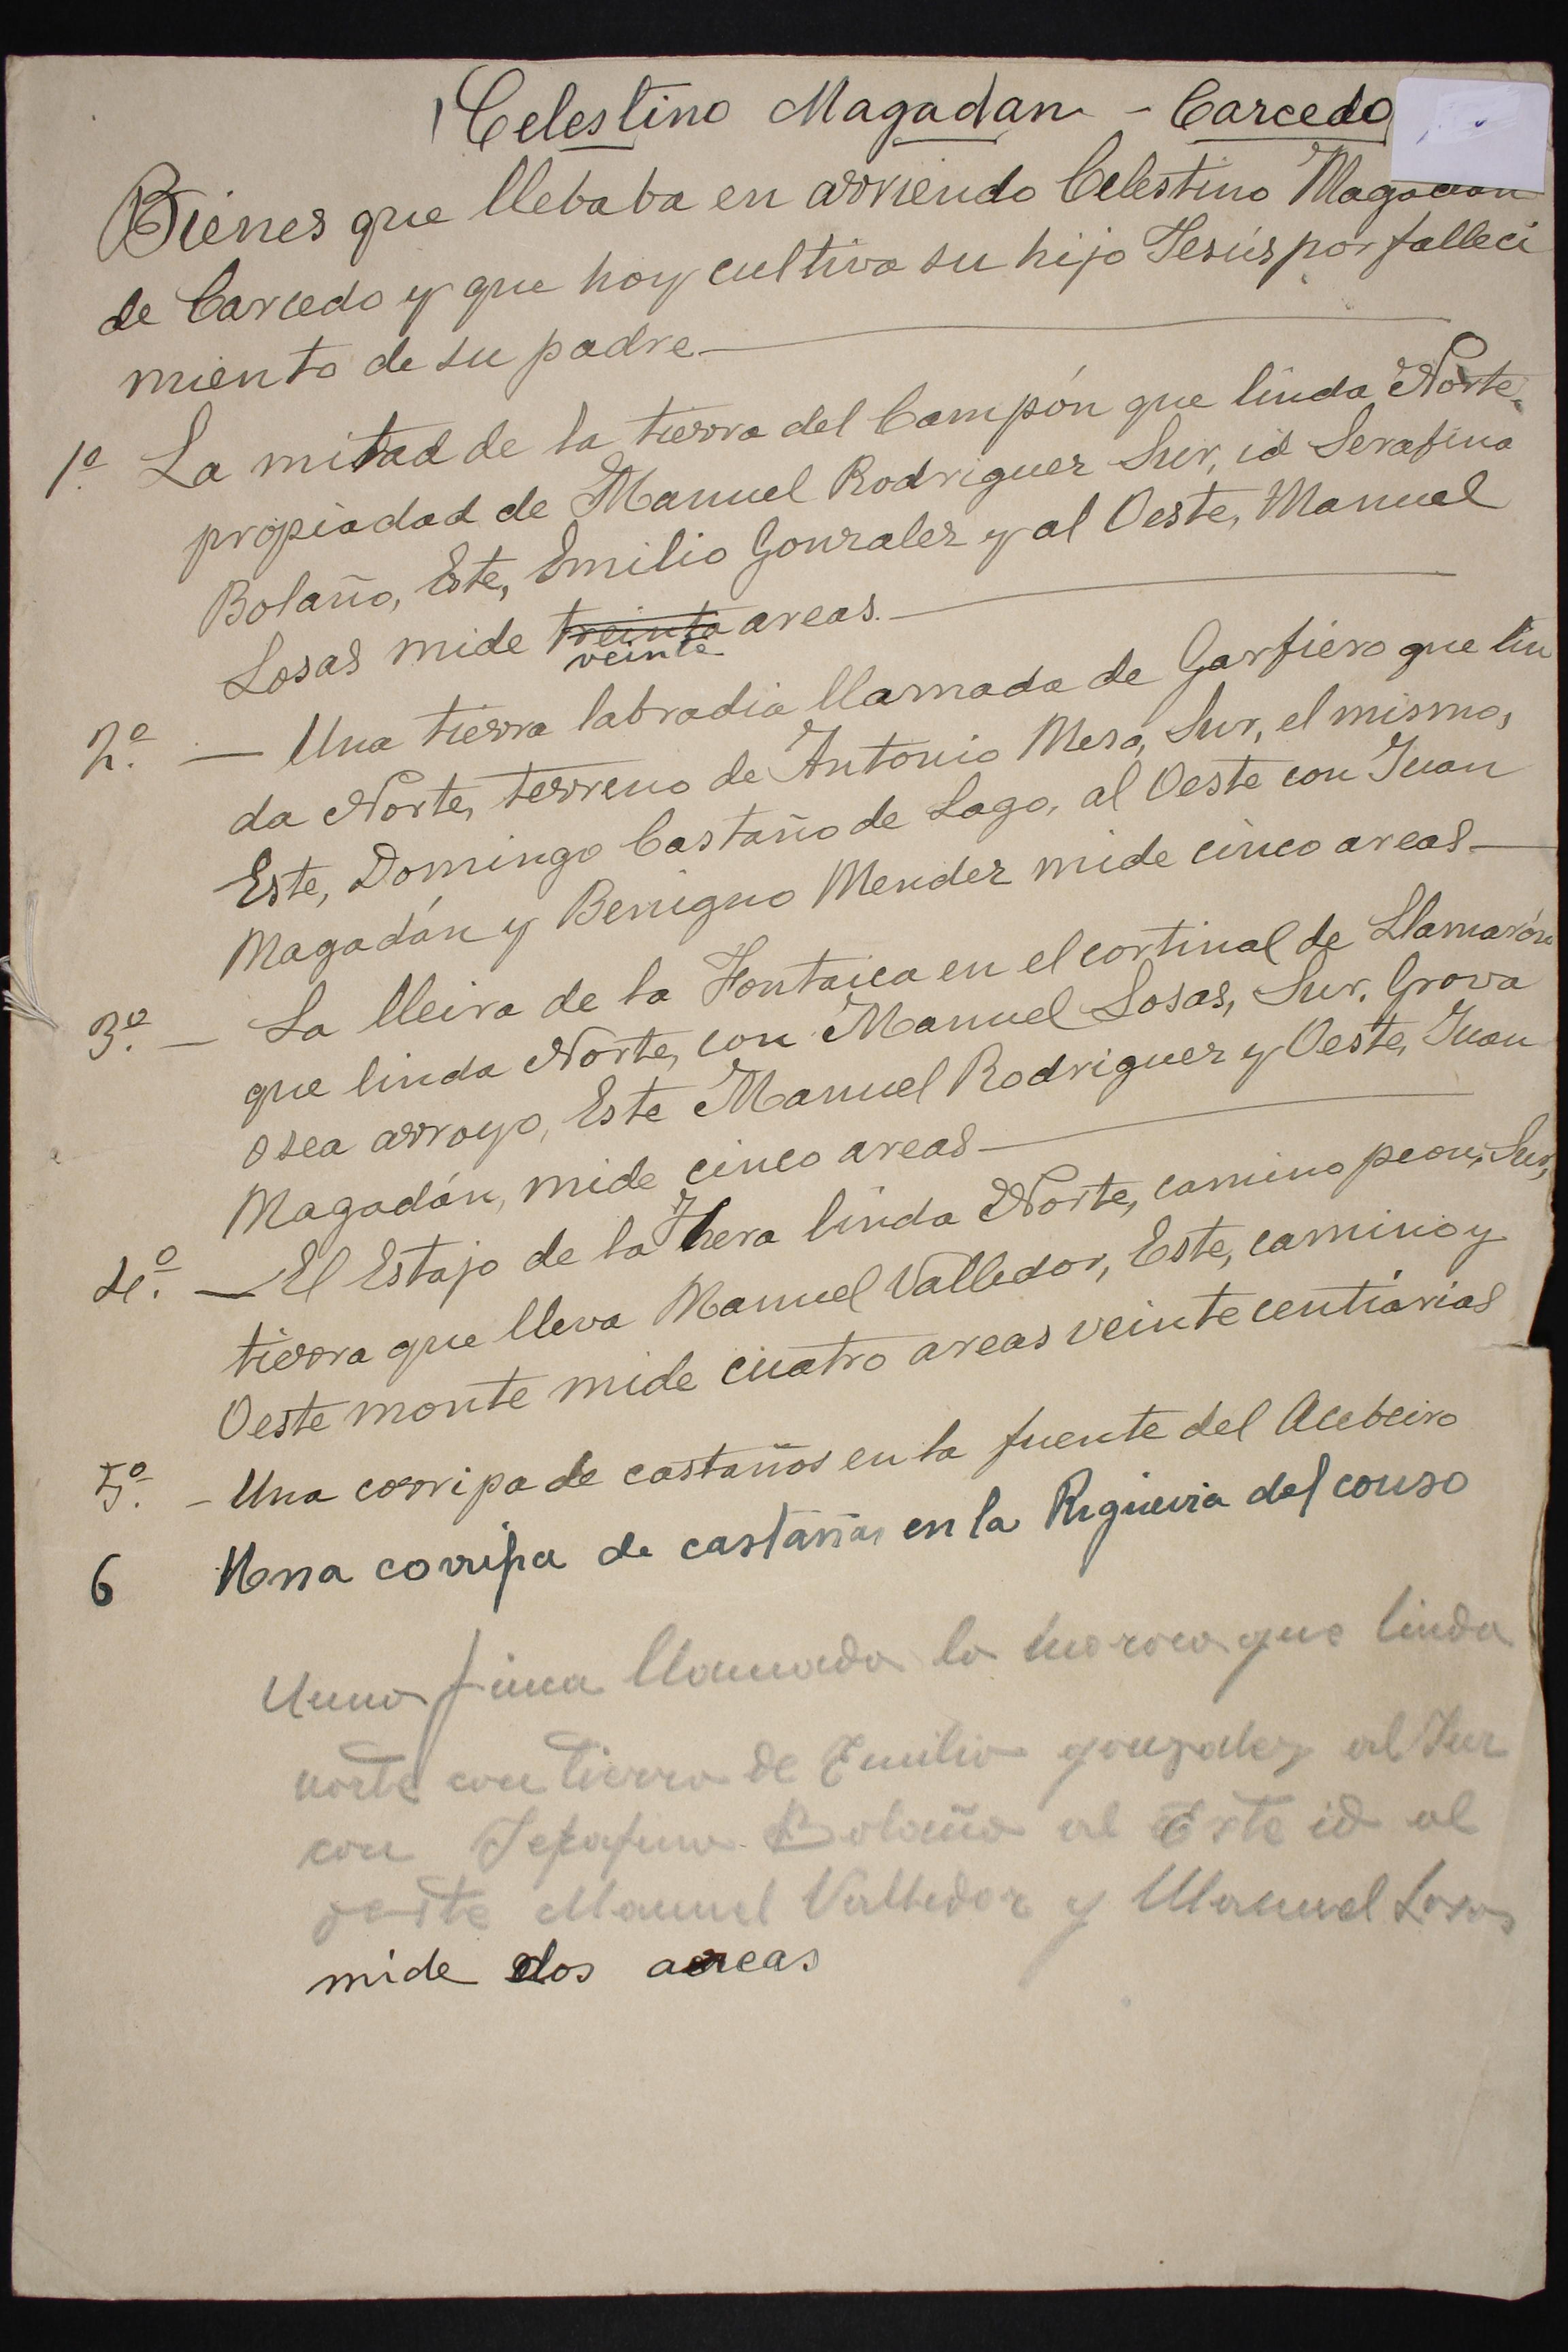 Celestino Magadan - Carcedo
Bienes que llebaba en arriendo Celestino Magadan
de Carcedo y que hoy cultiva su hijo Jesús por falleci
miento de su padre
1º La mitad de la tierra del Campón que linda Norte,
propiadad de Manuel Rodriguez Sur, id Serafina
Bolaño, Este, Emilio Gonzalez y al Oeste, Manuel
Losas mide treinta areas.
veinte
2º. — Una tierra labradia llamada de Garfiero que lin
da Norte, terreno de Antonio Mesa, Sur, el mismo,
Este, Domingo Castaño de Lago, al Oeste con Juan
Magadán y Benigno Mendez mide cinco areas
3º. — La lleira de la Fontaica en el cortinal de Llamarón
que linda Norte, con Manuel Losas, Sur. Grova
osea arroyo, Este Manuel Rodriguez y Oeste, Juan
Magadán, mide cinco areas
4º. — El Estajo de la hera linda Norte, camino peon, Sur,
tierra que lleva Manuel Valledor, Este, camino y
Oeste monte mide cuatro areas veinte centiarias
5º. - Una corripa de castaños en la fuente del Acebeiro
6 Una corripa de castaños en la Rigueira del couso
Una finca llamada la que linda
norte con tierra de Emilio gonzalez al Sur
con Serafina Bolaño al Este id al
oeste Manuel Valledor y Manuel Losas
mide dos areas